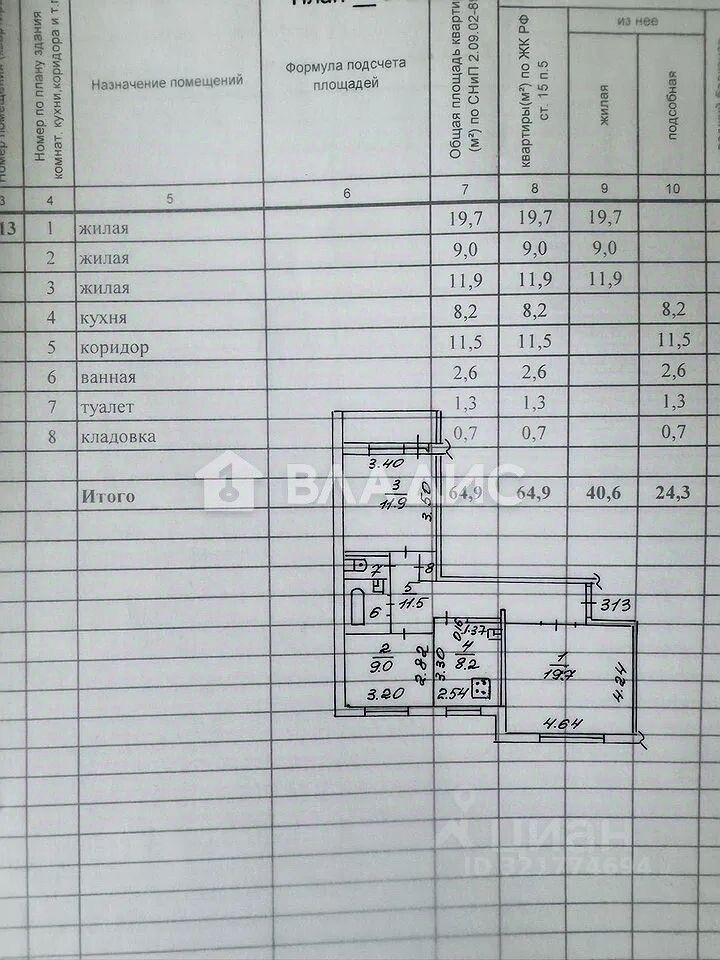 План
Номер по плану здания
комнат, кухни, коридора и т.п
Назначение помещений
Формула подсчета
площадей
Общая площадь кварти
(м²) по СНиП 2.09.02-8
квартиры(м²) по ЖК РФ
ст. 15 п.5
из нее
жилая
подсобная
3 4 5 6 7 8 9 10
13 1 жилая 19,7 19,7 19,7
2 жилая 9,0 9,0 9,0
3 жилая 11,9 11,9 11,9
4 кухня 8,2 8,2 8,2
5 коридор 11,5 11,5 11,5
6 ванная 2,6 2,6 2,6
7 туалет 1,3 1,3 1,3
8 кладовка 0,7 0,7 0,7
Итого 64,9 64,9 40,6 24,3
ВЛАДИС
3.40
3
11.9
3.50
7
8
5
11.5
6
313
0.16
1.37
2
9.0
2.82
3.20
4
8.2
3.30
2.54
1
19.7
4.24
4.64
циан
ID 321774694